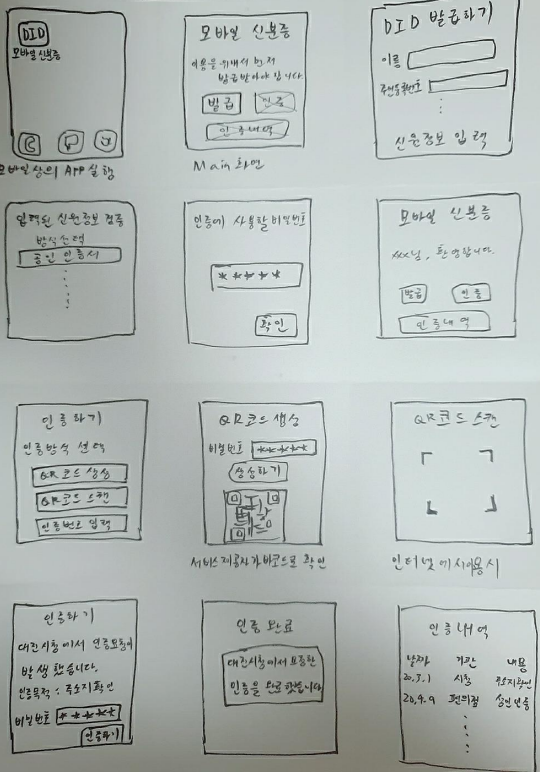 DID
모바일신분증
모바일상의 APP 실행
모바일 신분증
이용을 위해서 먼저
발급받아야 합니다
발급
인증
인증내역
Main 화면
DID 발급하기
이름
주민등록번호
신원정보 입력
입력된 신원정보 검증
방식선택
공인인증서
인증에 사용할 비밀번호
*****
확인
모바일 신분증
xxx님, 환영합니다.
발급
인증
인증내역
인증하기
인증방식 선택
QR코드 생성
QR코드 스캔
인증번호 입력
QR코드 생성
비밀번호 *****
생성하기
서비스제공자가 바코드로 확인
QR코드 스캔
인터넷에서 이용시
인증하기
대전시청에서 인증요청이
발생했습니다.
인증목적 : 주소지확인
비밀번호 *****
인증하기
인증 완료
대전시청에서 요청한
인증을 완료했습니다
인증내역
날짜 기관 내용
20.3.1 시청 주소지확인
20.4.9 편의점 성인인증